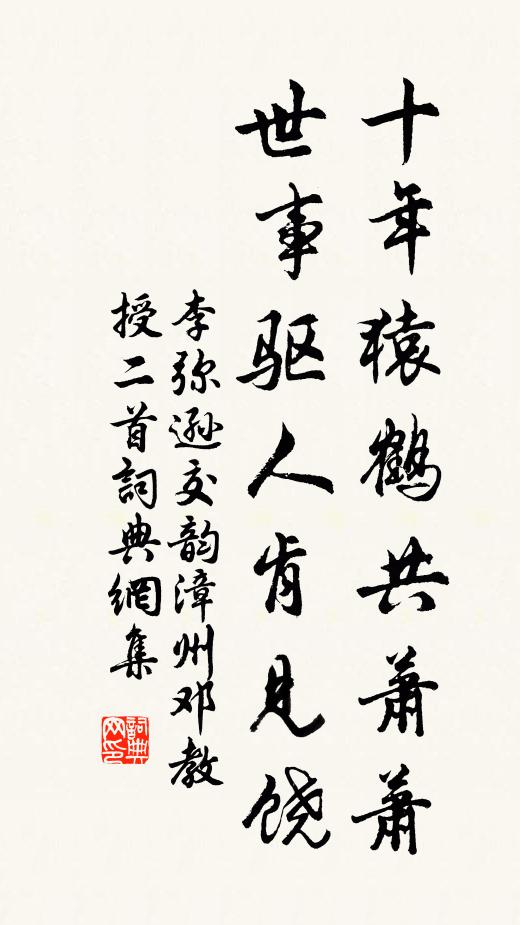 十年猿鶴共蕭蕭
世事驱人肯見饶
李弥遜交韵漳州邓教
授二首詞典網集
詞典
网印